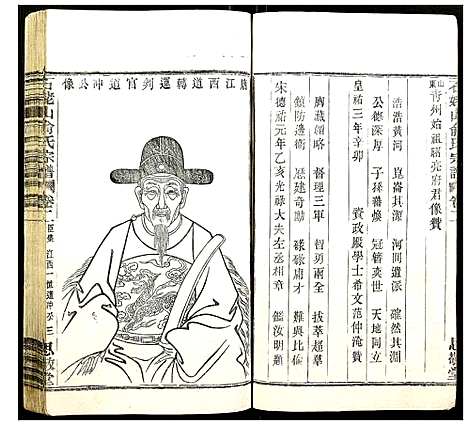 石姥山俞氏宗譜 卷二
山東青州始祖紹亮府君像贊
浩浩黃河 崑崙其源 河間道派 確然其淵
公德深厚 子孫蕃煥 冠簪奕世 天地同立
皇祐三年辛卯 資政殿學士希文范仲淹贊
膺藏韻略 督理三軍 智勇兩全 拔萃超羣
鎮防邊衛 歷建奇勳 碌碌庸才 難與比倫
宋德祐元年乙亥光祿大夫左丞相章鑑汝明題
思敬堂
唐江西道轉運判官道冲公像
石姥山俞氏宗譜 卷二
三 思敬堂